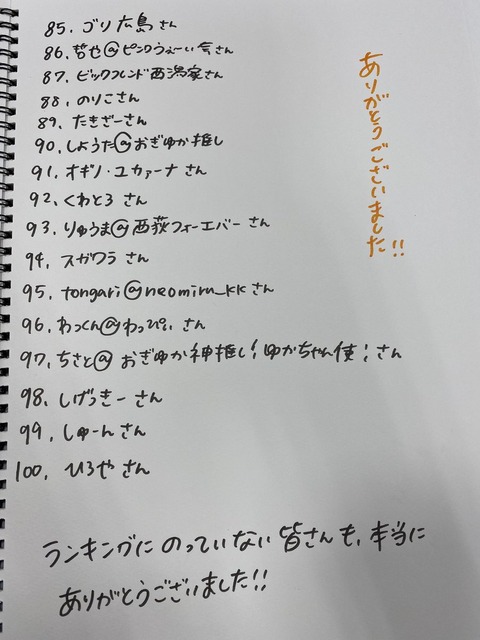 85. ゴリ広島さん
86. 哲や@ピンクうぇーい会さん
87. ビックフレンド西潟家さん
88. のりこさん
89. たきざーさん
90. しょうた@おぎゆか推し
91. オギノ・ユカァーナ さん
92. くわとろ さん
93. りゅうま@西荻フォーエバー さん
94. スガワラ さん
95. tongari@neomiru_kk さん
96. わっくん@わっぴぃ さん
97. ちさと@おぎゆか神推し!ゆかちゃん使!さん
98. しげっきー さん
99. しゅーん さん
100. ひろや さん
ありがとうございました!!
ランキングにのっていない皆さんも、本当に
ありがとうございました!!